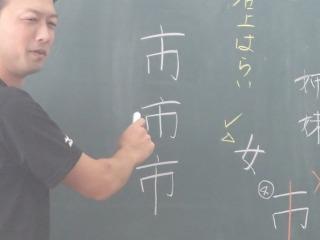 姉妹
右上はらい
女
市
市
市
市